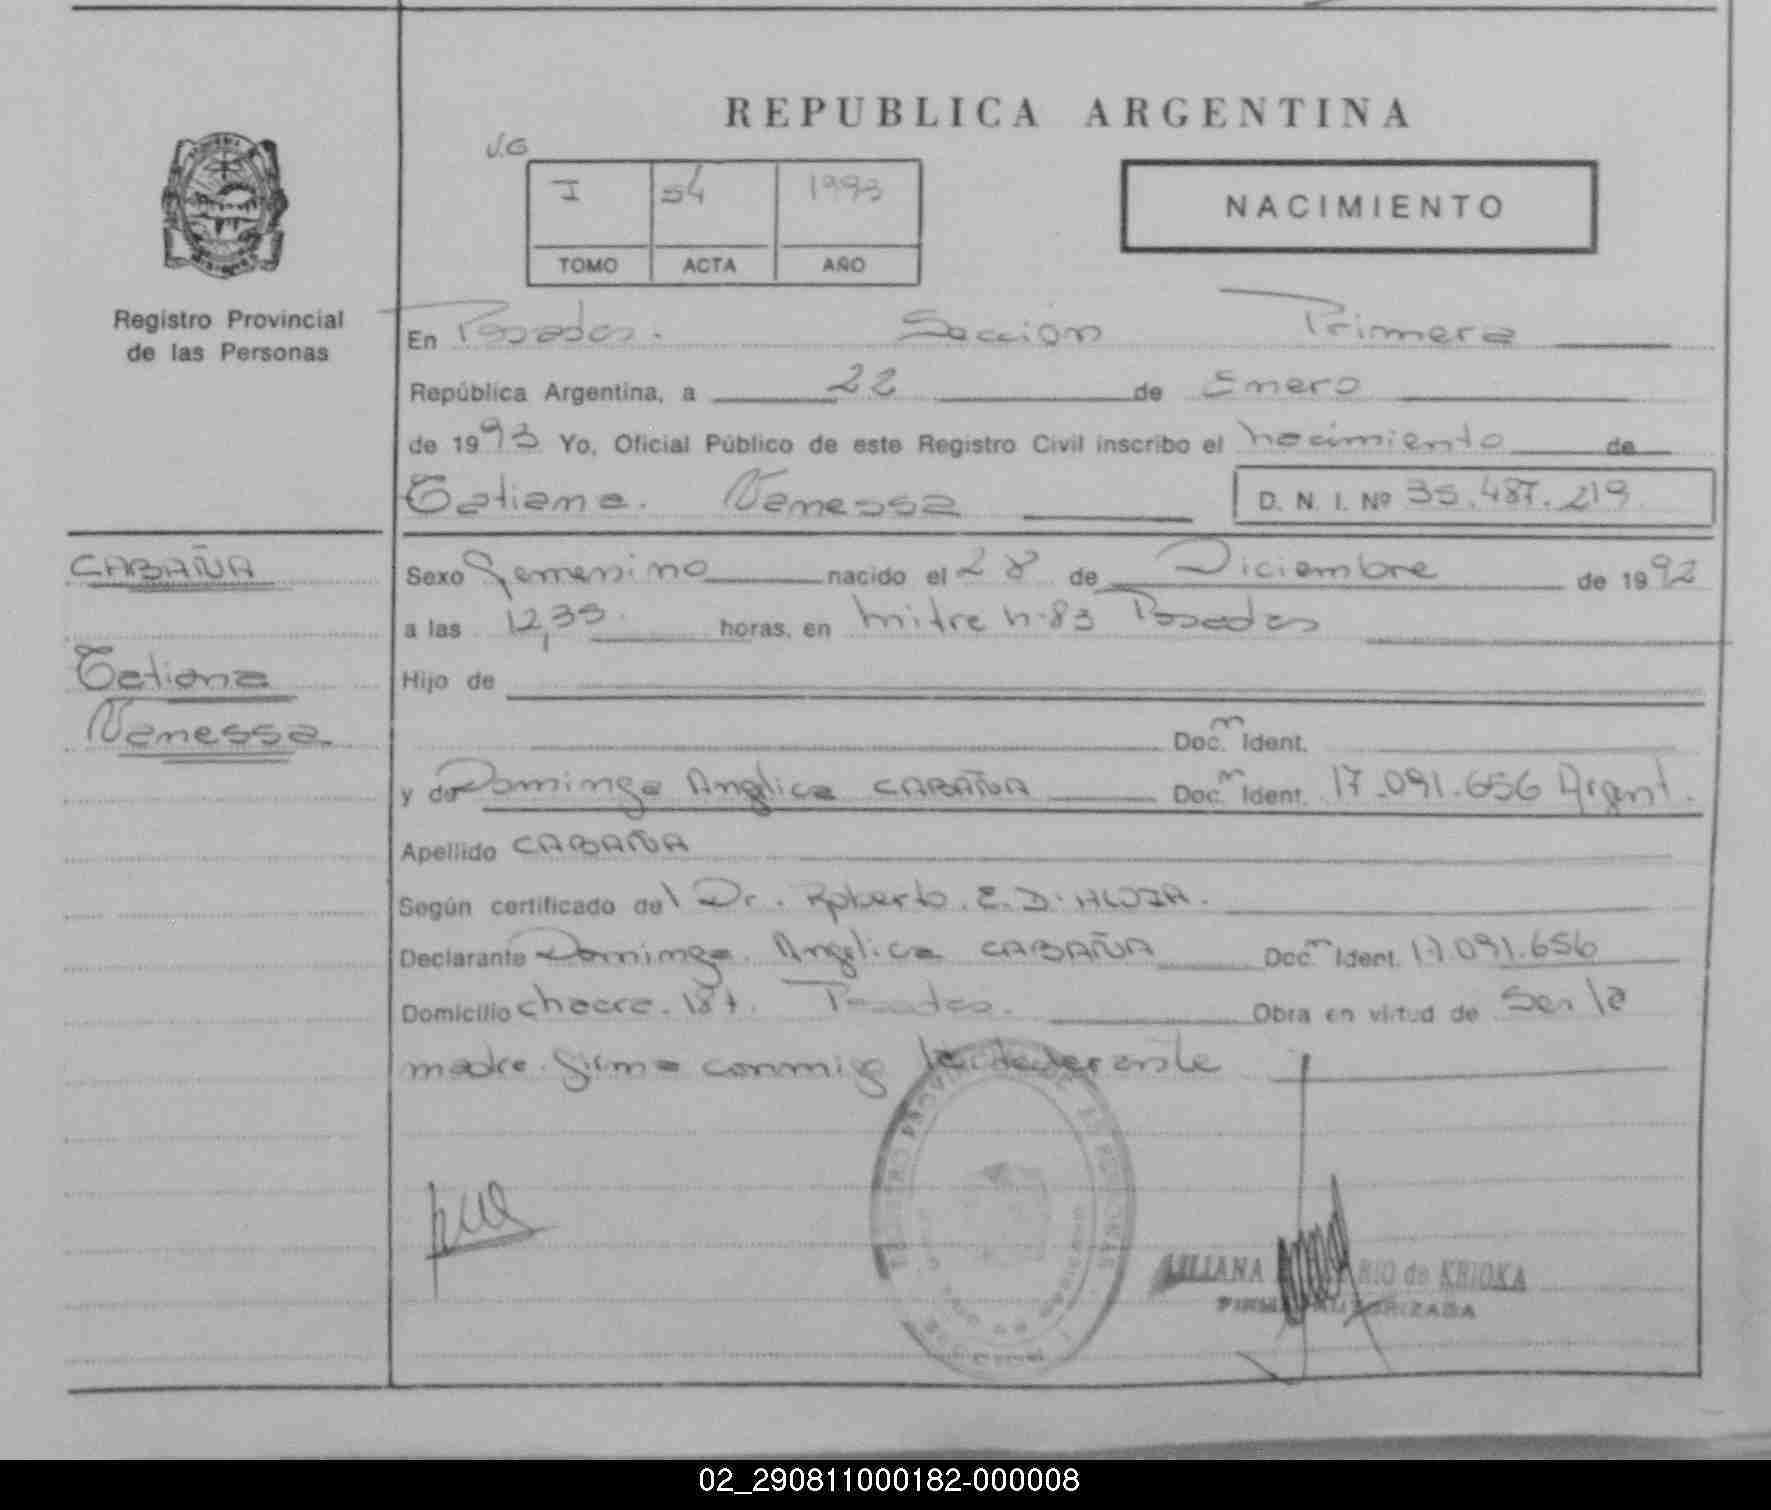 REPUBLICA ARGENTINA
J.G
I 54 1993
TOMO ACTA AÑO
NACIMIENTO
Registro Provincial
de las Personas
En Posadas. Sección Primera
República Argentina, a 22 de Enero
de 1993 Yo, Oficial Público de este Registro Civil inscribo el nacimiento de
Tatiana. Vanessa D. N. I. Nº 35.487.219
CABAÑA
Tatiana
Vanessa
Sexo Femenino nacido el 28 de Diciembre de 1992
a las 12,35. horas, en mitre n·83 Posadas
Hijo de
Doc.m Ident.
y de Dominga Anglica CABAÑA Doc.m Ident. 17.091.656 Argent.
Apellido CABAÑA
Según certificado del Dr. Roberto. E. D.
Declarante Dominga. Angelica CABAÑA Doc.m Ident. 17.091.656
Domicilio chacra. 187. Posadas. Obra en virtud de Ser la
madre. firma conmigo la declarante
REGISTRO PROVINCIAL DE LAS PERSONAS
MISIONES
LILIANA RIO de KRIOKA
FIRMA AUTORIZADA
02_290811000182-000008